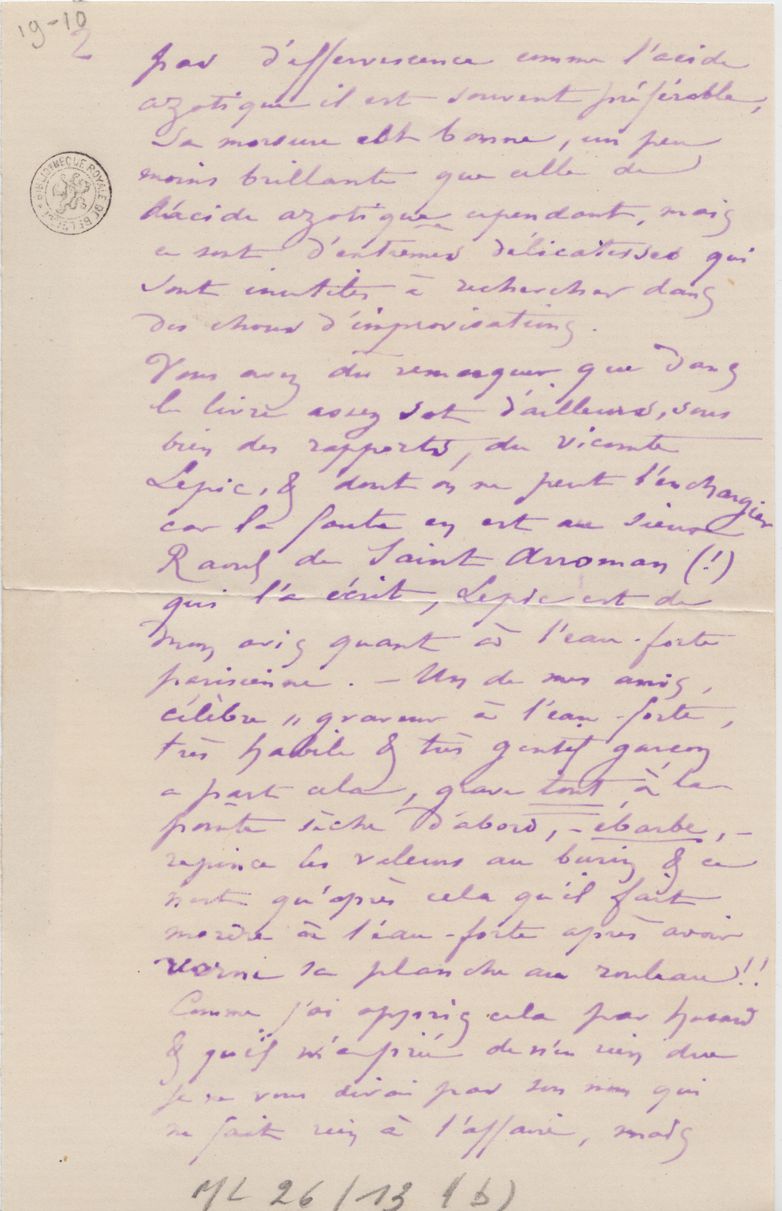 19-10
2
pas d'effervescence comme l'acide
azotique il est souvent préférable,
Sa morsure est bonne, un peu
moins brillante que celle de
l'acide azotique cependant, mais
ce sont d'extrêmes délicatesses qui
sont inutiles à rechercher dans
des choses d'improvisations.
Vous avez dû remarquer que dans
le livre assez sot d'ailleurs, sous
bien des rapports, du vicomte
Lepic, & dont on ne peut l'en charger
car la faute en est au sieur
Raoul de Saint Arroman (!)
qui l'a écrit, Lepic est de
mon avis quant à l'eau-forte
parisienne. – Un de mes amis,
célèbre „ graveur à l'eau-forte,
très habile & très gentil garçon
a part cela, grave tout, à la
pointe sèche d'abord, – ébarbe, –
repince les valeurs au burin & ce
n'est qu'après cela qu'il fait
mordre à l'eau-forte après avoir
verni sa planche au rouleau!!
Comme j'ai appris cela par hasard
& qu'il m'a prié de n'en rien dire
je ne vous dirai pas son nom qui
ne fait rien à l'affaire, mais
BIBLIOTHEQUE ROYALE DE BELGIQUE
ML 26/13 (b)